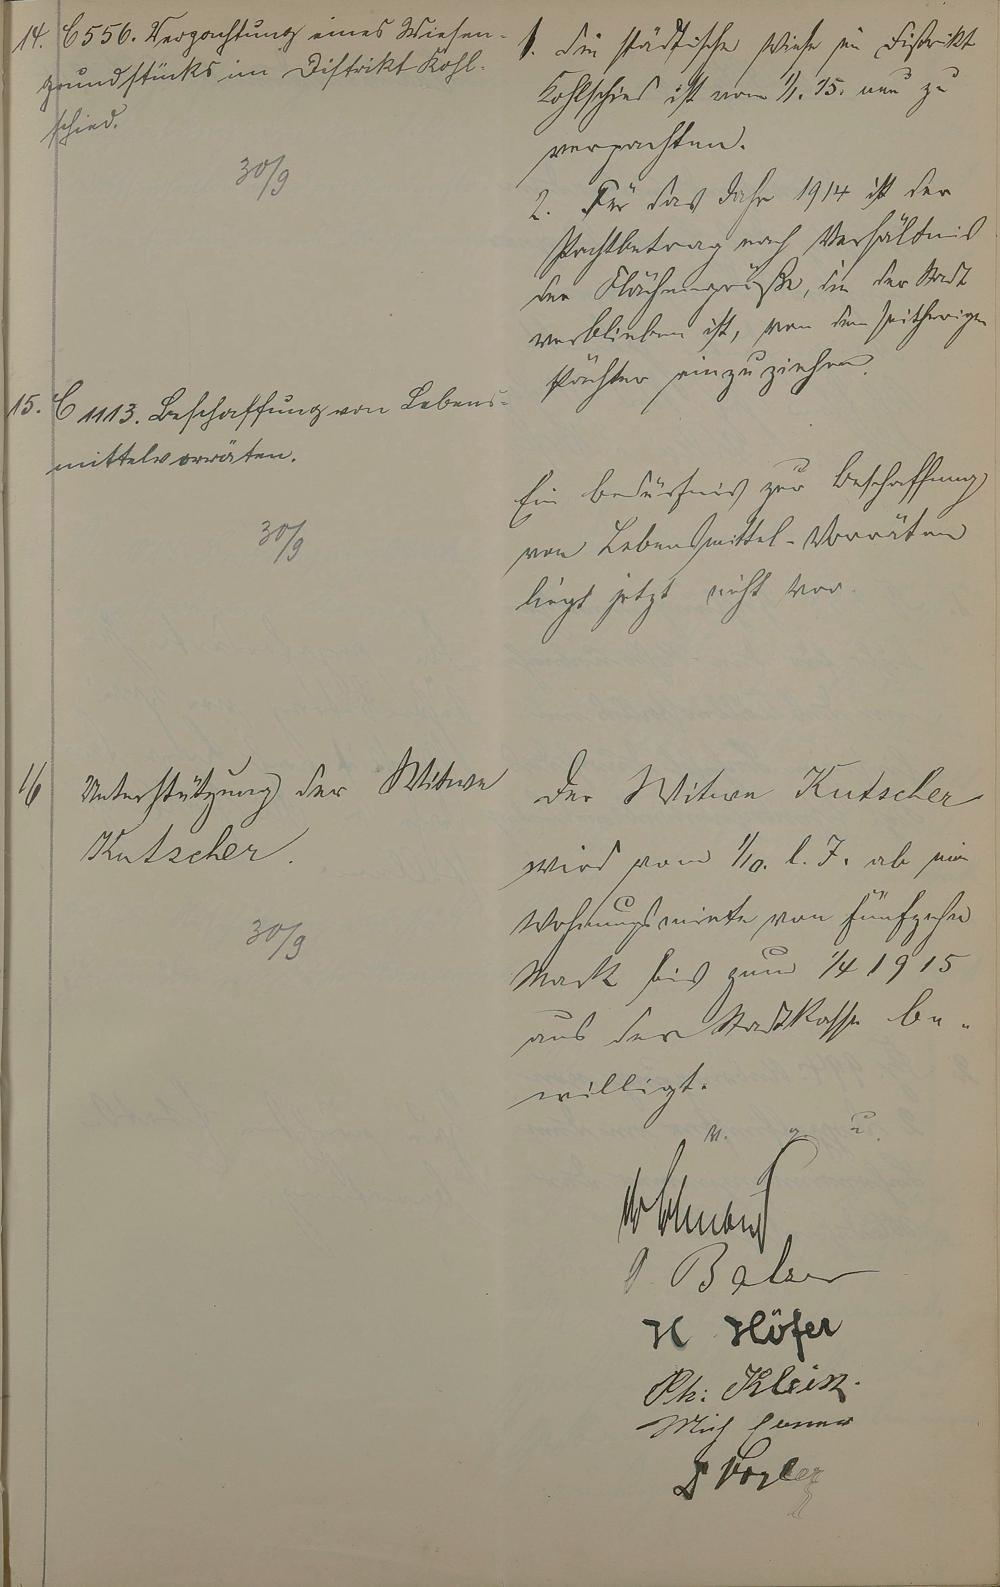 14. C 556. Verpachtung eines Wiesen-
grundstücks im Distrikt Kohl-
schied.
30/9
1. Die städtische Wiese im Distrikt
Kohlschied ist vom 1/1. 15. neu zu
verpachten.
2. Für das Jahr 1914 ist der
Pachtbetrag nach Verhältnis
der Flächengröße, die der Stadt
verblieben ist, von dem seitherigen
Pächter einzuziehen.
15. C 1113. Beschaffung von Lebens-
mittelvorräten.
30/9
Ein Bedürfnis zur Beschaffung
von Lebensmittel-Vorräten
liegt jetzt nicht vor.
16 Unterstützung der Witwe
Kutscher.
30/9
Der Witwe Kutscher
wird vom 1/10. l. J. ab eine
Wohnungsmiete von fünfzehn
Mark bis zum 1/4 1915
aus der Stadtkasse be-
willigt.
v. g. u.
Balzer
H Höfer
Ph: Klein.
Vogler